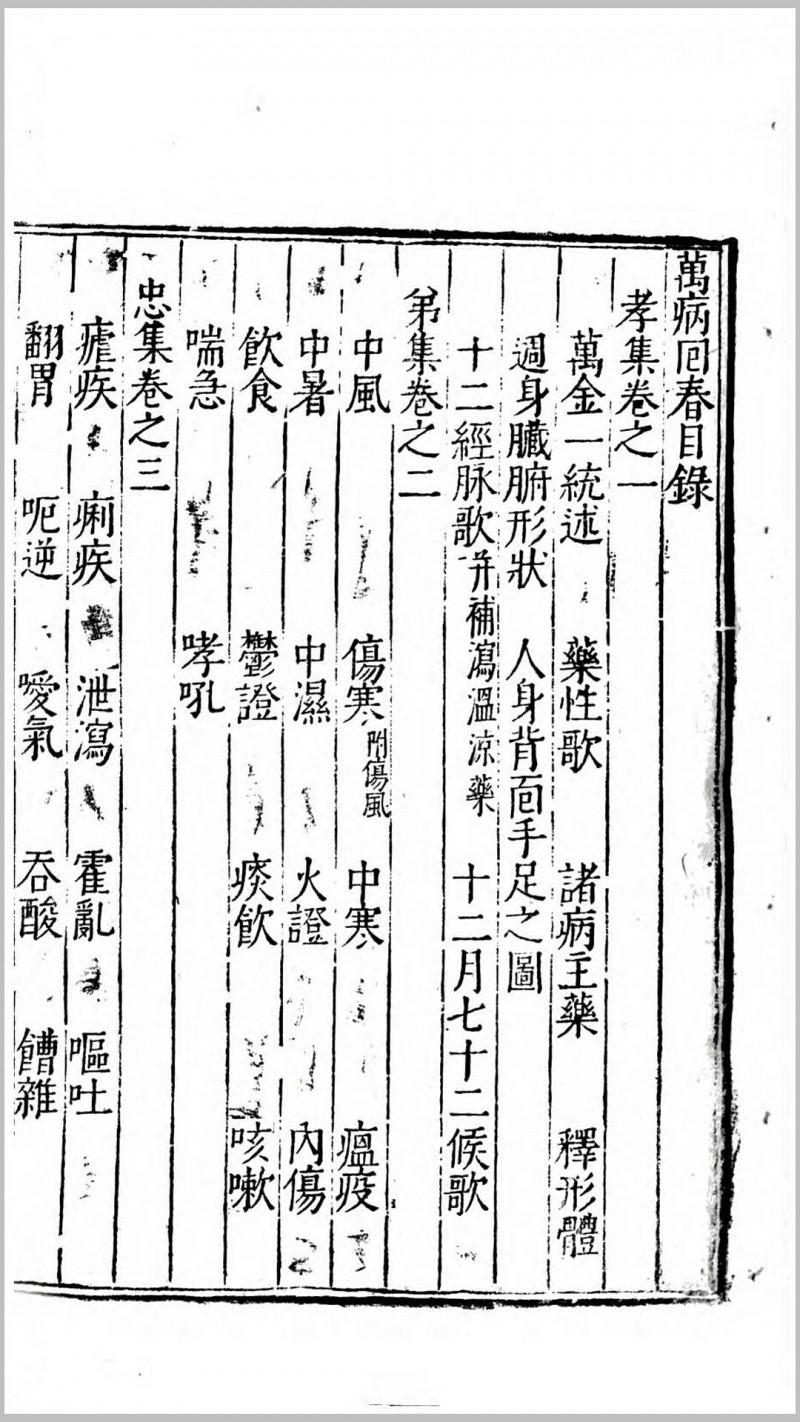 萬病囘春目錄
孝集卷之一
萬金一統述 藥性歌 諸病主藥 釋形體
週身臟腑形狀 人身背面手足之圖
十二經脉歌 并補瀉溫凉藥 十二月七十二候歌
弟集卷之二
中風 傷寒 附傷風 中寒 瘟疫
中暑 中濕 火證 內傷
飲食 鬱證 痰飲 咳嗽
喘急 哮吼
忠集卷之三
瘧疾 痢疾 泄瀉 霍亂 嘔吐
翻胃 呃逆 噯氣 吞酸 饋雜